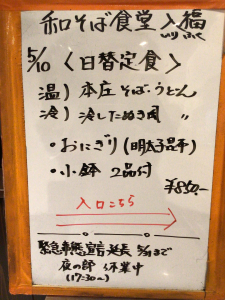 和そば食堂 入福
いり ふく
5/10 〈日替定食〉
温）本庄 そば、うどん
冷）冷したぬき風 〃
・おにぎり（明太子昆布）
・小鉢 2品付
¥850.-
入口こちら
緊急事態宣言延長 5/31まで
夜の部 休業中
(17:30〜)